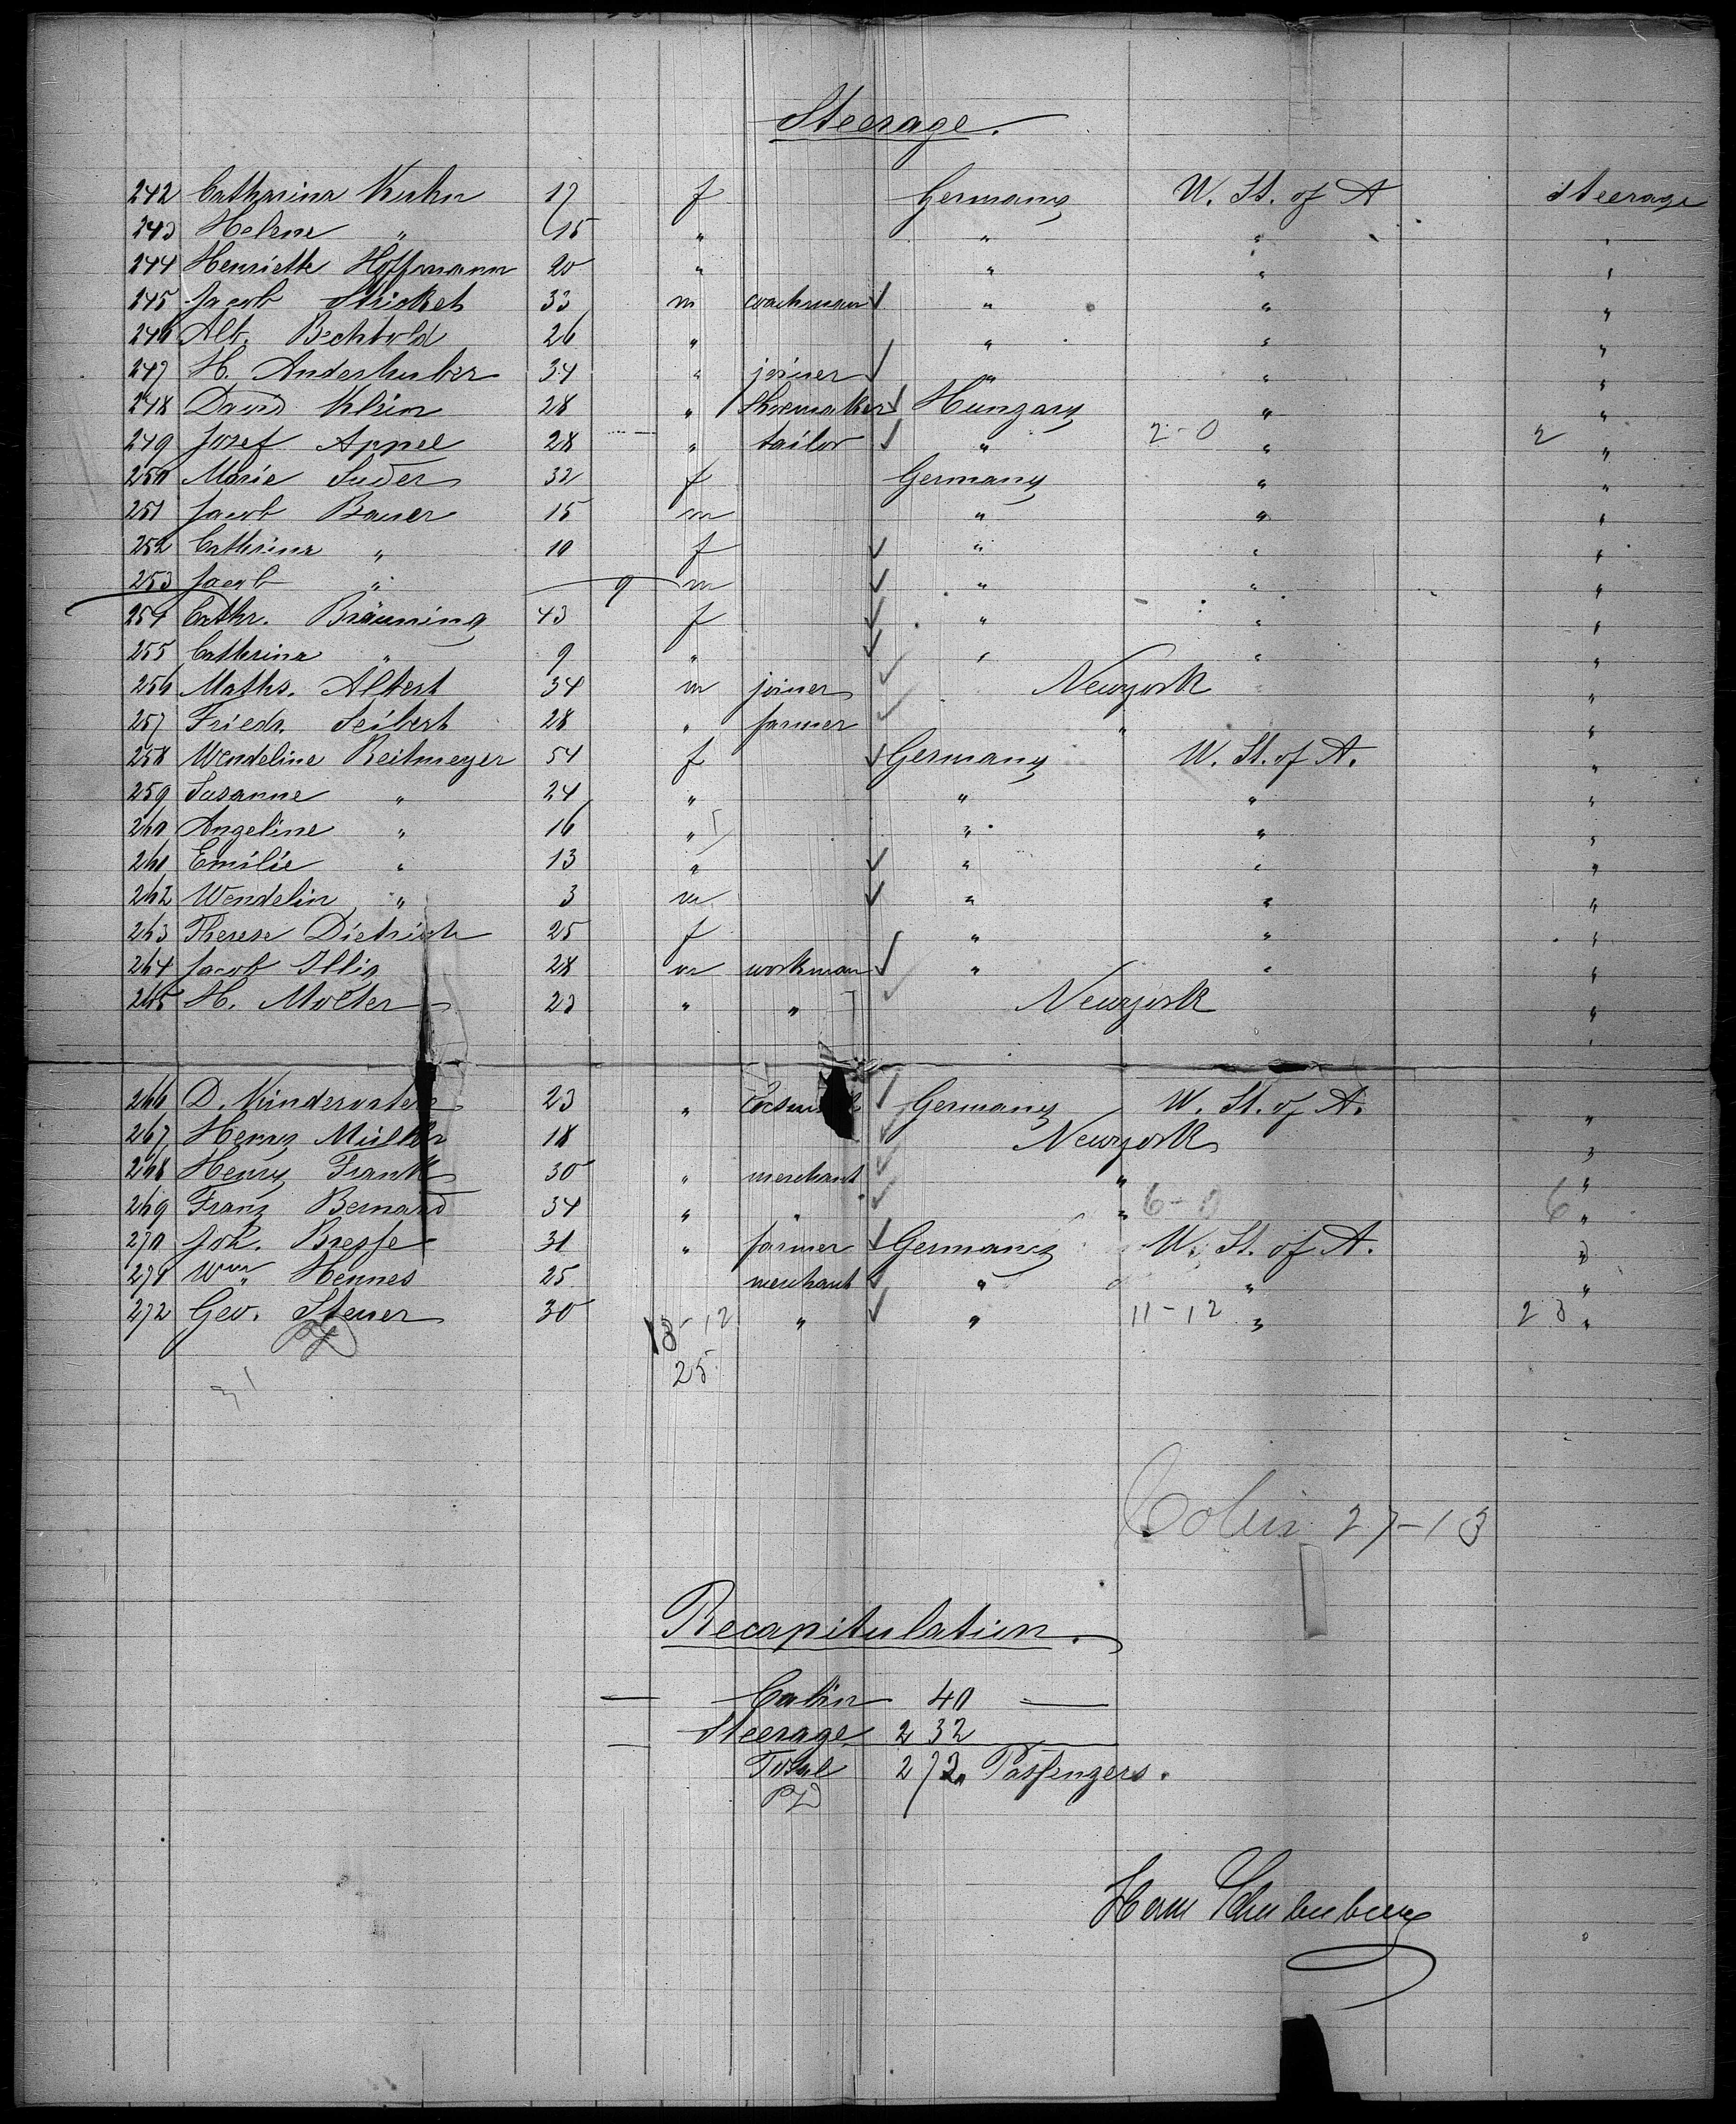 Steerage.
242 Catharina Kuhn 17 f Germany U. St. of A steerage
243 Helene " 15 " " " "
244 Henriette Hoffmann 20 " " " "
245 Jacob Stricket 33 m coachman " " "
246 Alb. Bechtold 26 " " " "
247 H. Anderhuber 34 " joiner " " "
248 David Klein 28 " Shoemaker Hungary " "
249 Josef Appel 28 " tailor " 2-0 " 2 "
250 Marie Suder 32 f Germany " "
251 Jacob Bauer 15 m " " "
252 Cathrina " 10 f " " "
253 Jacob " 9 m " " "
254 Cathr. Bräuning 43 f " " "
255 Cathrina " 9 " " " "
256 Maths. Altert 34 m joiner Newyork "
257 Friedr. Seibert 28 " farmer " "
258 Wendeline Reitmeyer 54 f Germany U. St. of A. "
259 Susanne " 24 " " " "
260 Angeline " 16 " " " "
261 Emilie " 13 " " " "
262 Wendelin " 3 m " " "
263 Therese Dietrich 25 f " " "
264 Jacob Illig 28 m workman " " "
265 H. Molter 23 " " Newyork "
266 D. Kindervater 23 " Germany U. St. of A. "
267 Henry Müller 18 Newyork "
268 Henry Frank 30 " merchant " "
269 Franz Bernard 34 " " " 6-0 6 "
270 Joh. Breſse 31 " farmer Germany U. St. of A. "
271 Wm Hennes 25 merchant " " "
272 Geo. Steuer 30 13-12 " " 11-12 " 23 "
25
Cabin 27-13
Recapitulation.
Cabin 40
Steerage 232
Total 272 Paſsengers.